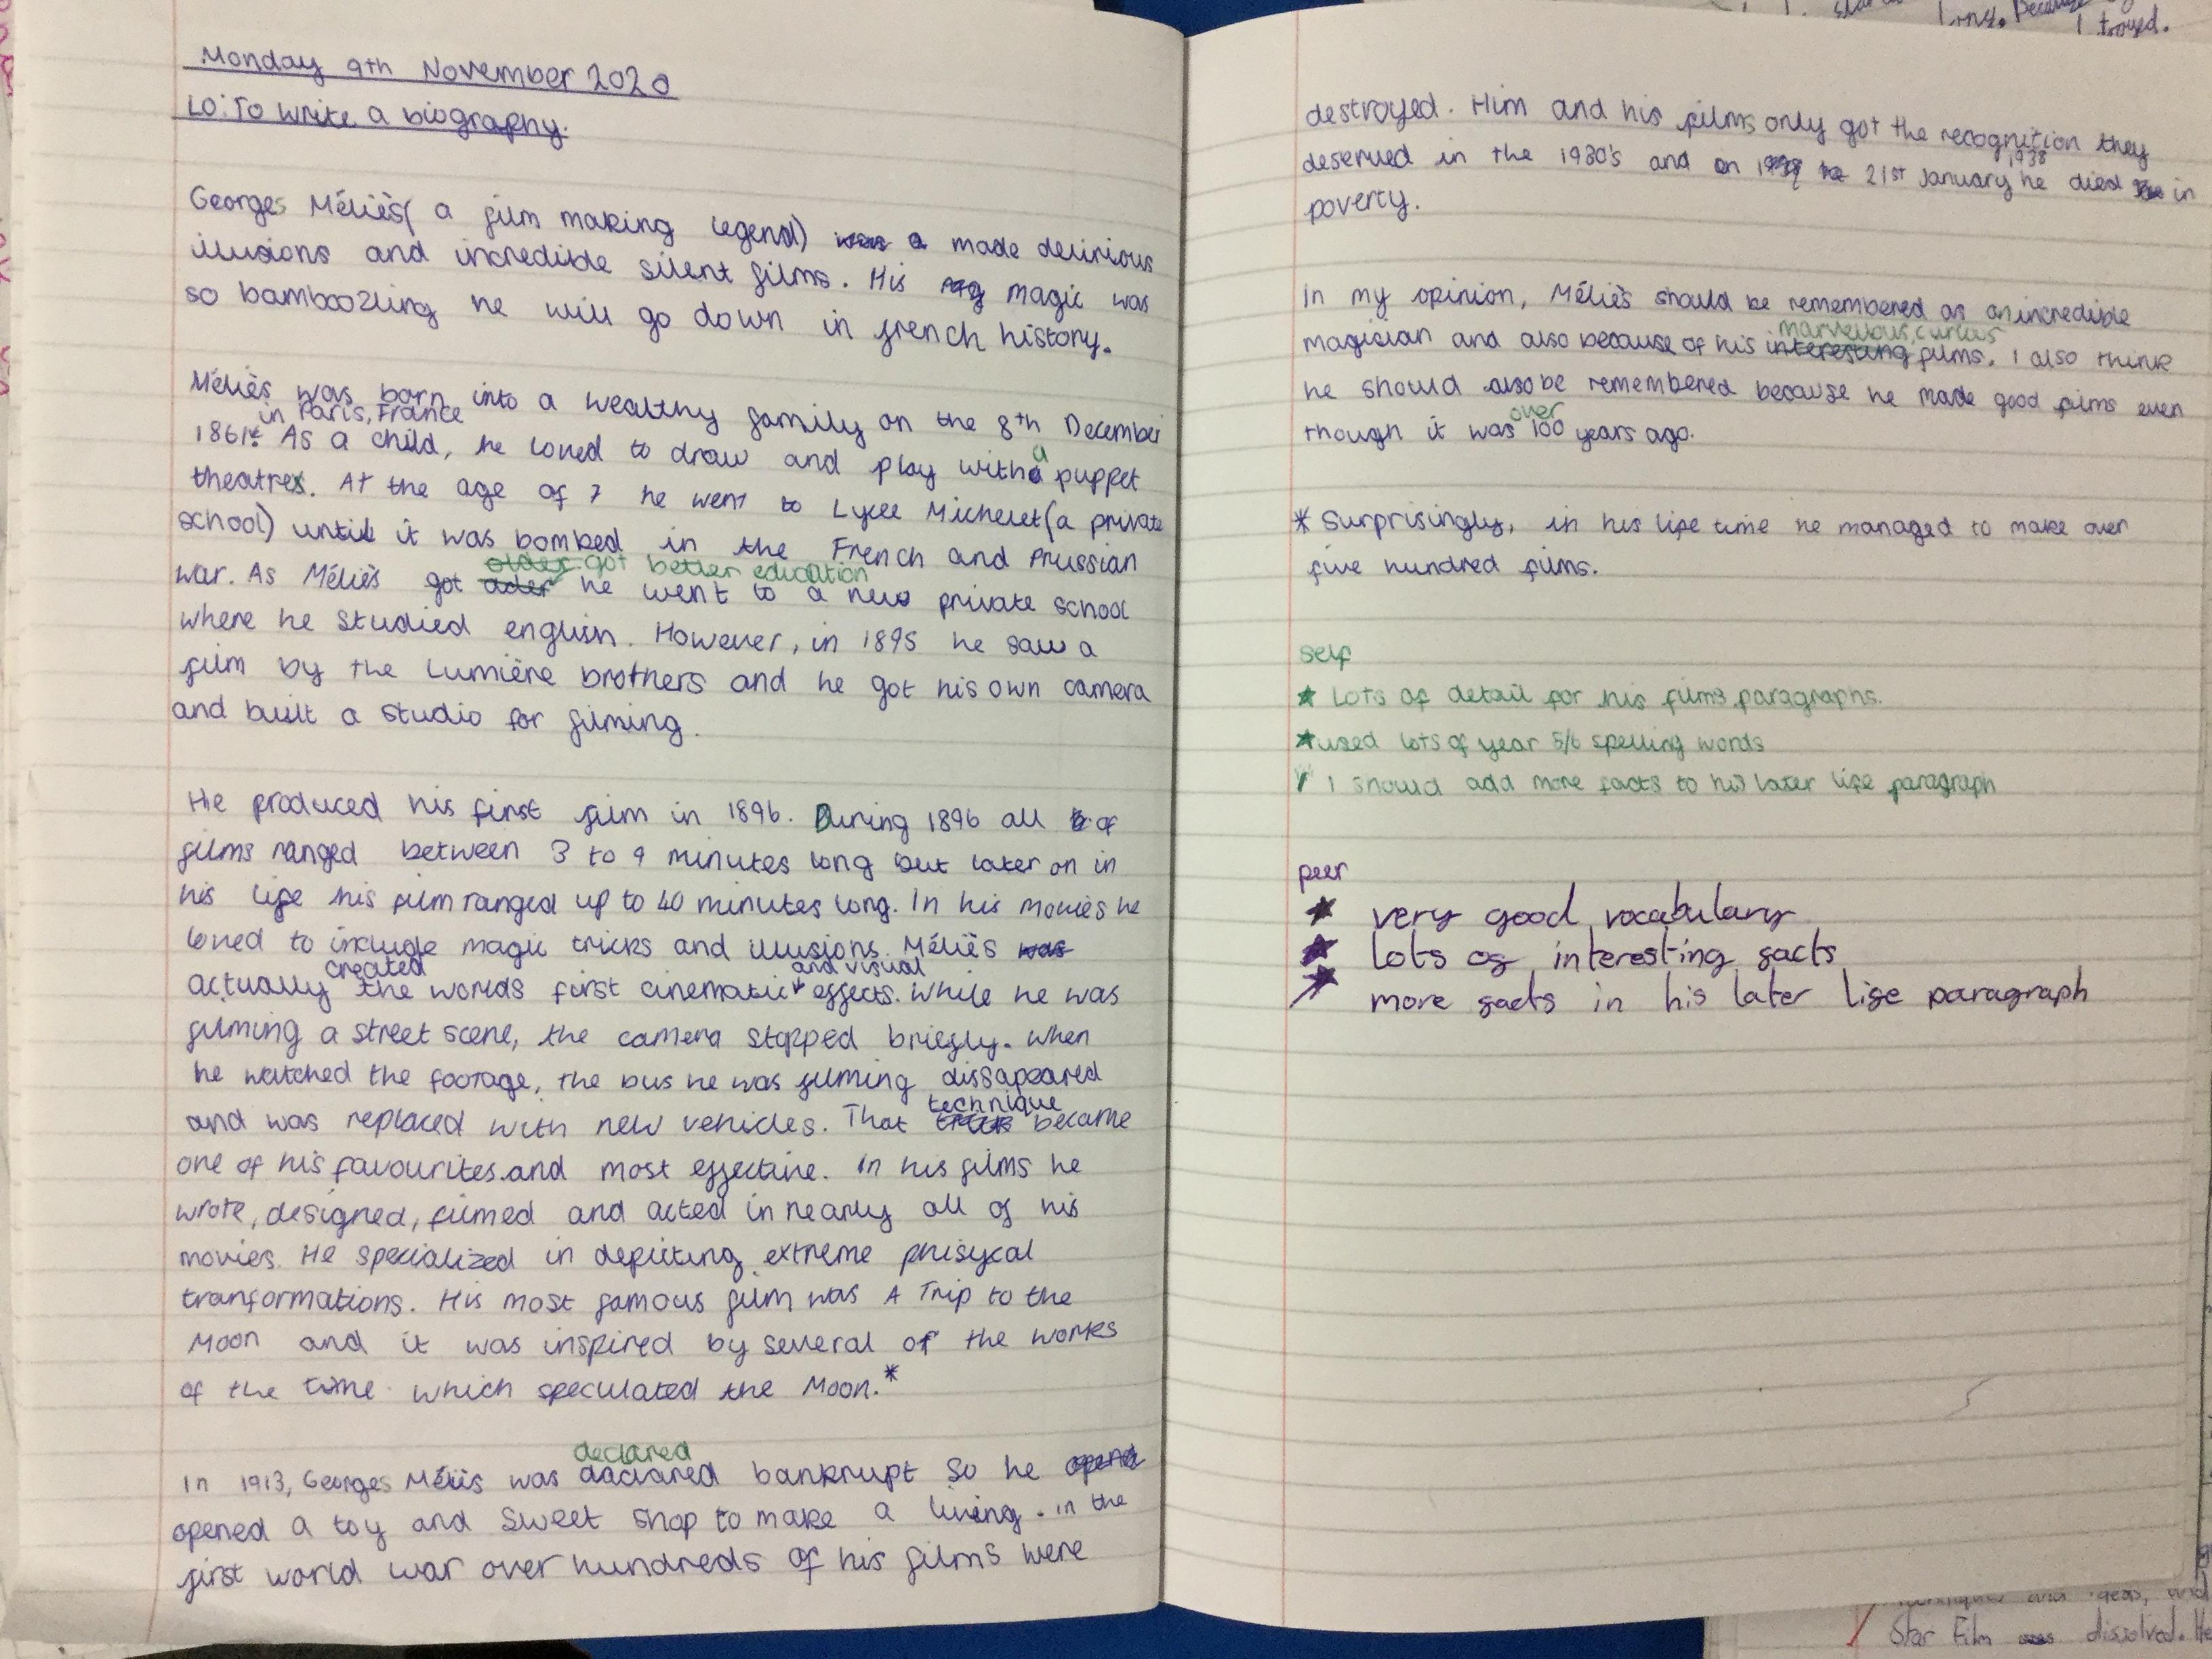 Monday 9th November 2020
LO: To write a biography.
Georges Méliès( a film making legend) was a made delirious
illusions and incredible silent films. His magic was
so bamboozling he will go down in french history.
Méliès was born into a wealthy family on the 8th December
in Paris, France
1861. As a child, he loved to draw and play with a puppet
theatre. At the age of 7 he went to Lycee Michelet (a private
school) until it was bombed in the French and Prussian
older got better education
war. As Méliès got older he went to a new private school
where he studied english. However, in 1895 he saw a
film by the Lumière brothers and he got his own camera
and built a studio for filming.
He produced his first film in 1896. During 1896 all of
films ranged between 3 to 9 minutes long but later on in
his life his film ranged up to 40 minutes long. In his movies he
loved to include magic tricks and illusions. Méliès was
created and visual
actually the worlds first cinematic effects. While he was
filming a street scene, the camera stopped briefly. When
he watched the footage, the bus he was filming dissapeared
technique
and was replaced with new vehicles. That trick became
one of his favourites and most effective. In his films he
wrote, designed, filmed and acted in nearly all of his
movies. He specialized in depicting extreme phisycal
tranformations. His most famous film was A Trip to the
Moon and it was inspired by several of the works
of the time which speculated the Moon.*
declared
In 1913, Georges Méliès was daclared bankrupt so he opend
opened a toy and sweet shop to make a living. in the
first world war over hundreds of his films were
destroyed. Him and his films only got the recognition they
1938
deserved in the 1930's and on 21st January he died in
poverty.
In my opinion, Méliès should be remembered as an incredible
marvellous, curious
magician and also because of his interesting films. I also think
he should also be remembered because he made good films even
over
though it was 100 years ago.
* Surprisingly, in his life time he managed to make over
five hundred films.
self
★ Lots of detail for his films paragraphs.
★ used lots of year 5/6 spelling words
I should add more facts to his later life paragraph
peer
★ very good vocabulary
★ lots of interesting facts
more facts in his later life paragraph
long. Because
troyed.
Star Film was dissolved. He